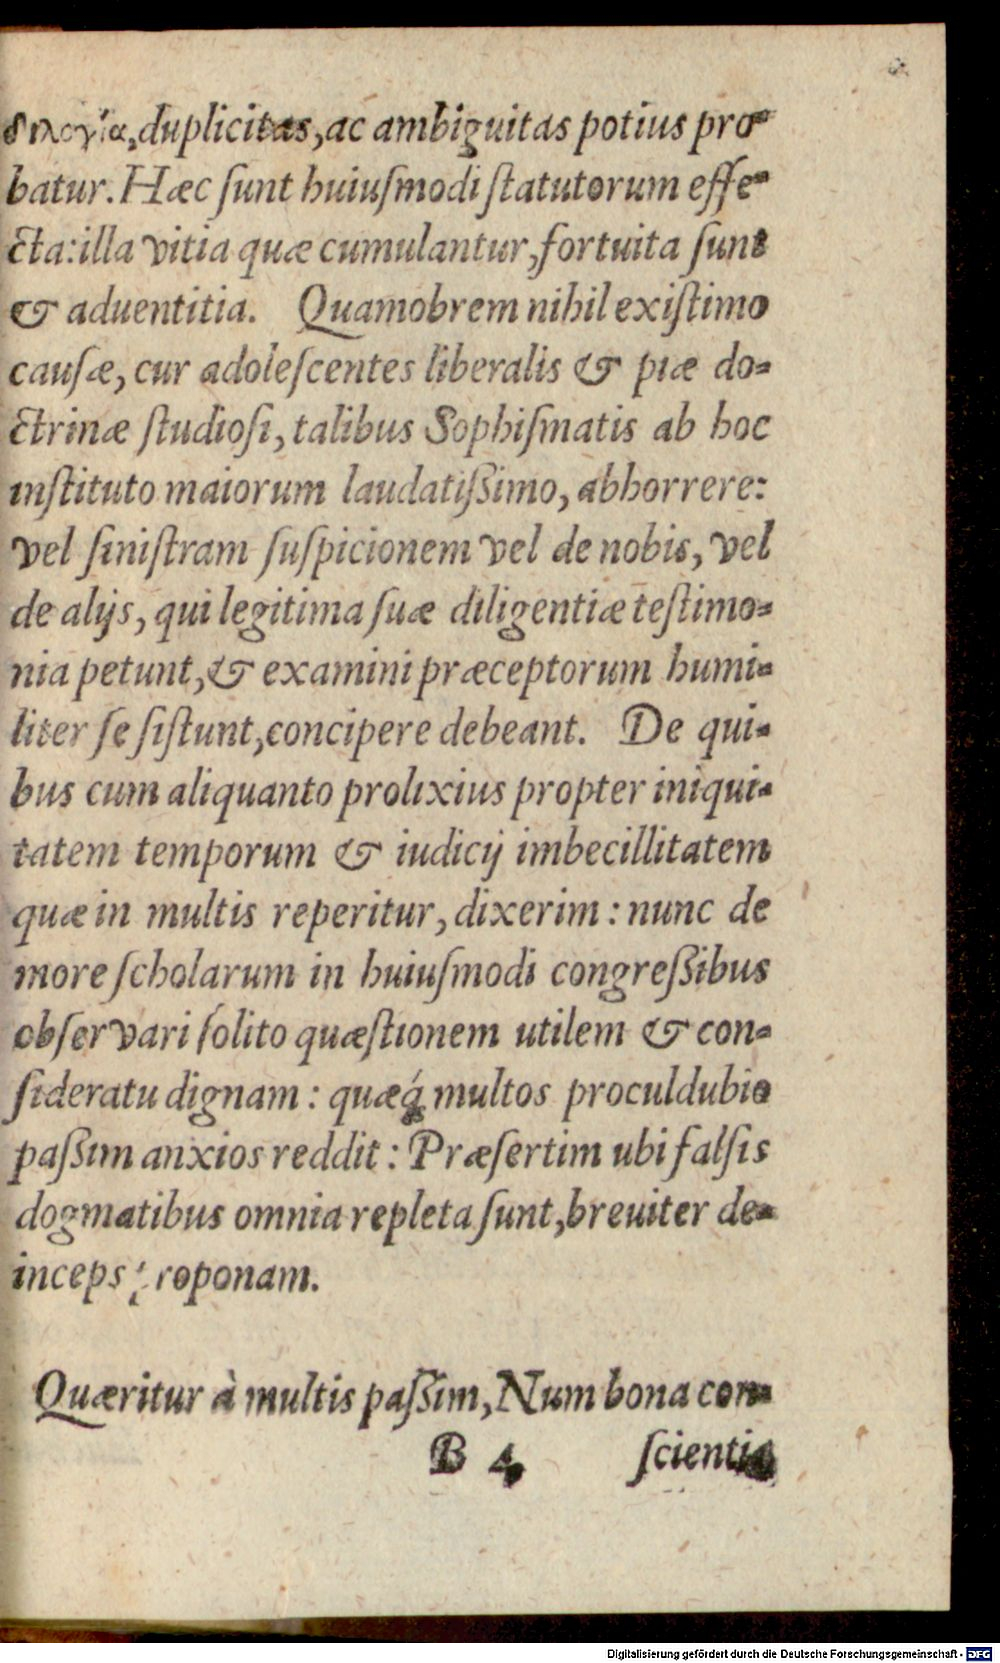 διλογία, duplicitas, ac ambiguitas potius pro-
batur. Hæc ſunt huiuſmodi ſtatutorum effe-
cta: illa vitia quæ cumulantur, fortuita ſunt
& aduentitia. Quamobrem nihil exiſtimo
cauſæ, cur adoleſcentes liberalis & piæ do-
ctrinæ ſtudioſi, talibus Sophiſmatis ab hoc
inſtituto maiorum laudatiſsimo, abhorrere:
vel ſiniſtram ſuſpicionem vel de nobis, vel
de alijs, qui legitima ſuæ diligentiæ teſtimo-
nia petunt, & examini præceptorum humi-
liter ſe ſiſtunt, concipere debeant. De qui-
bus cum aliquanto prolixius propter iniqui-
tatem temporum & iudicij imbecillitatem
quæ in multis reperitur, dixerim: nunc de
more ſcholarum in huiuſmodi congreſsibus
obſervari ſolito quæſtionem utilem & con-
ſideratu dignam: quæq́; multos proculdubio
paſsim anxios reddit: Præſertim ubi falſis
dogmatibus omnia repleta ſunt, breuiter de-
inceps proponam.
Quæritur à multis paſsim, Num bona con-
B 4 ſcientia
Digitalisierung gefördert durch die Deutsche Forschungsgemeinschaft - DFG